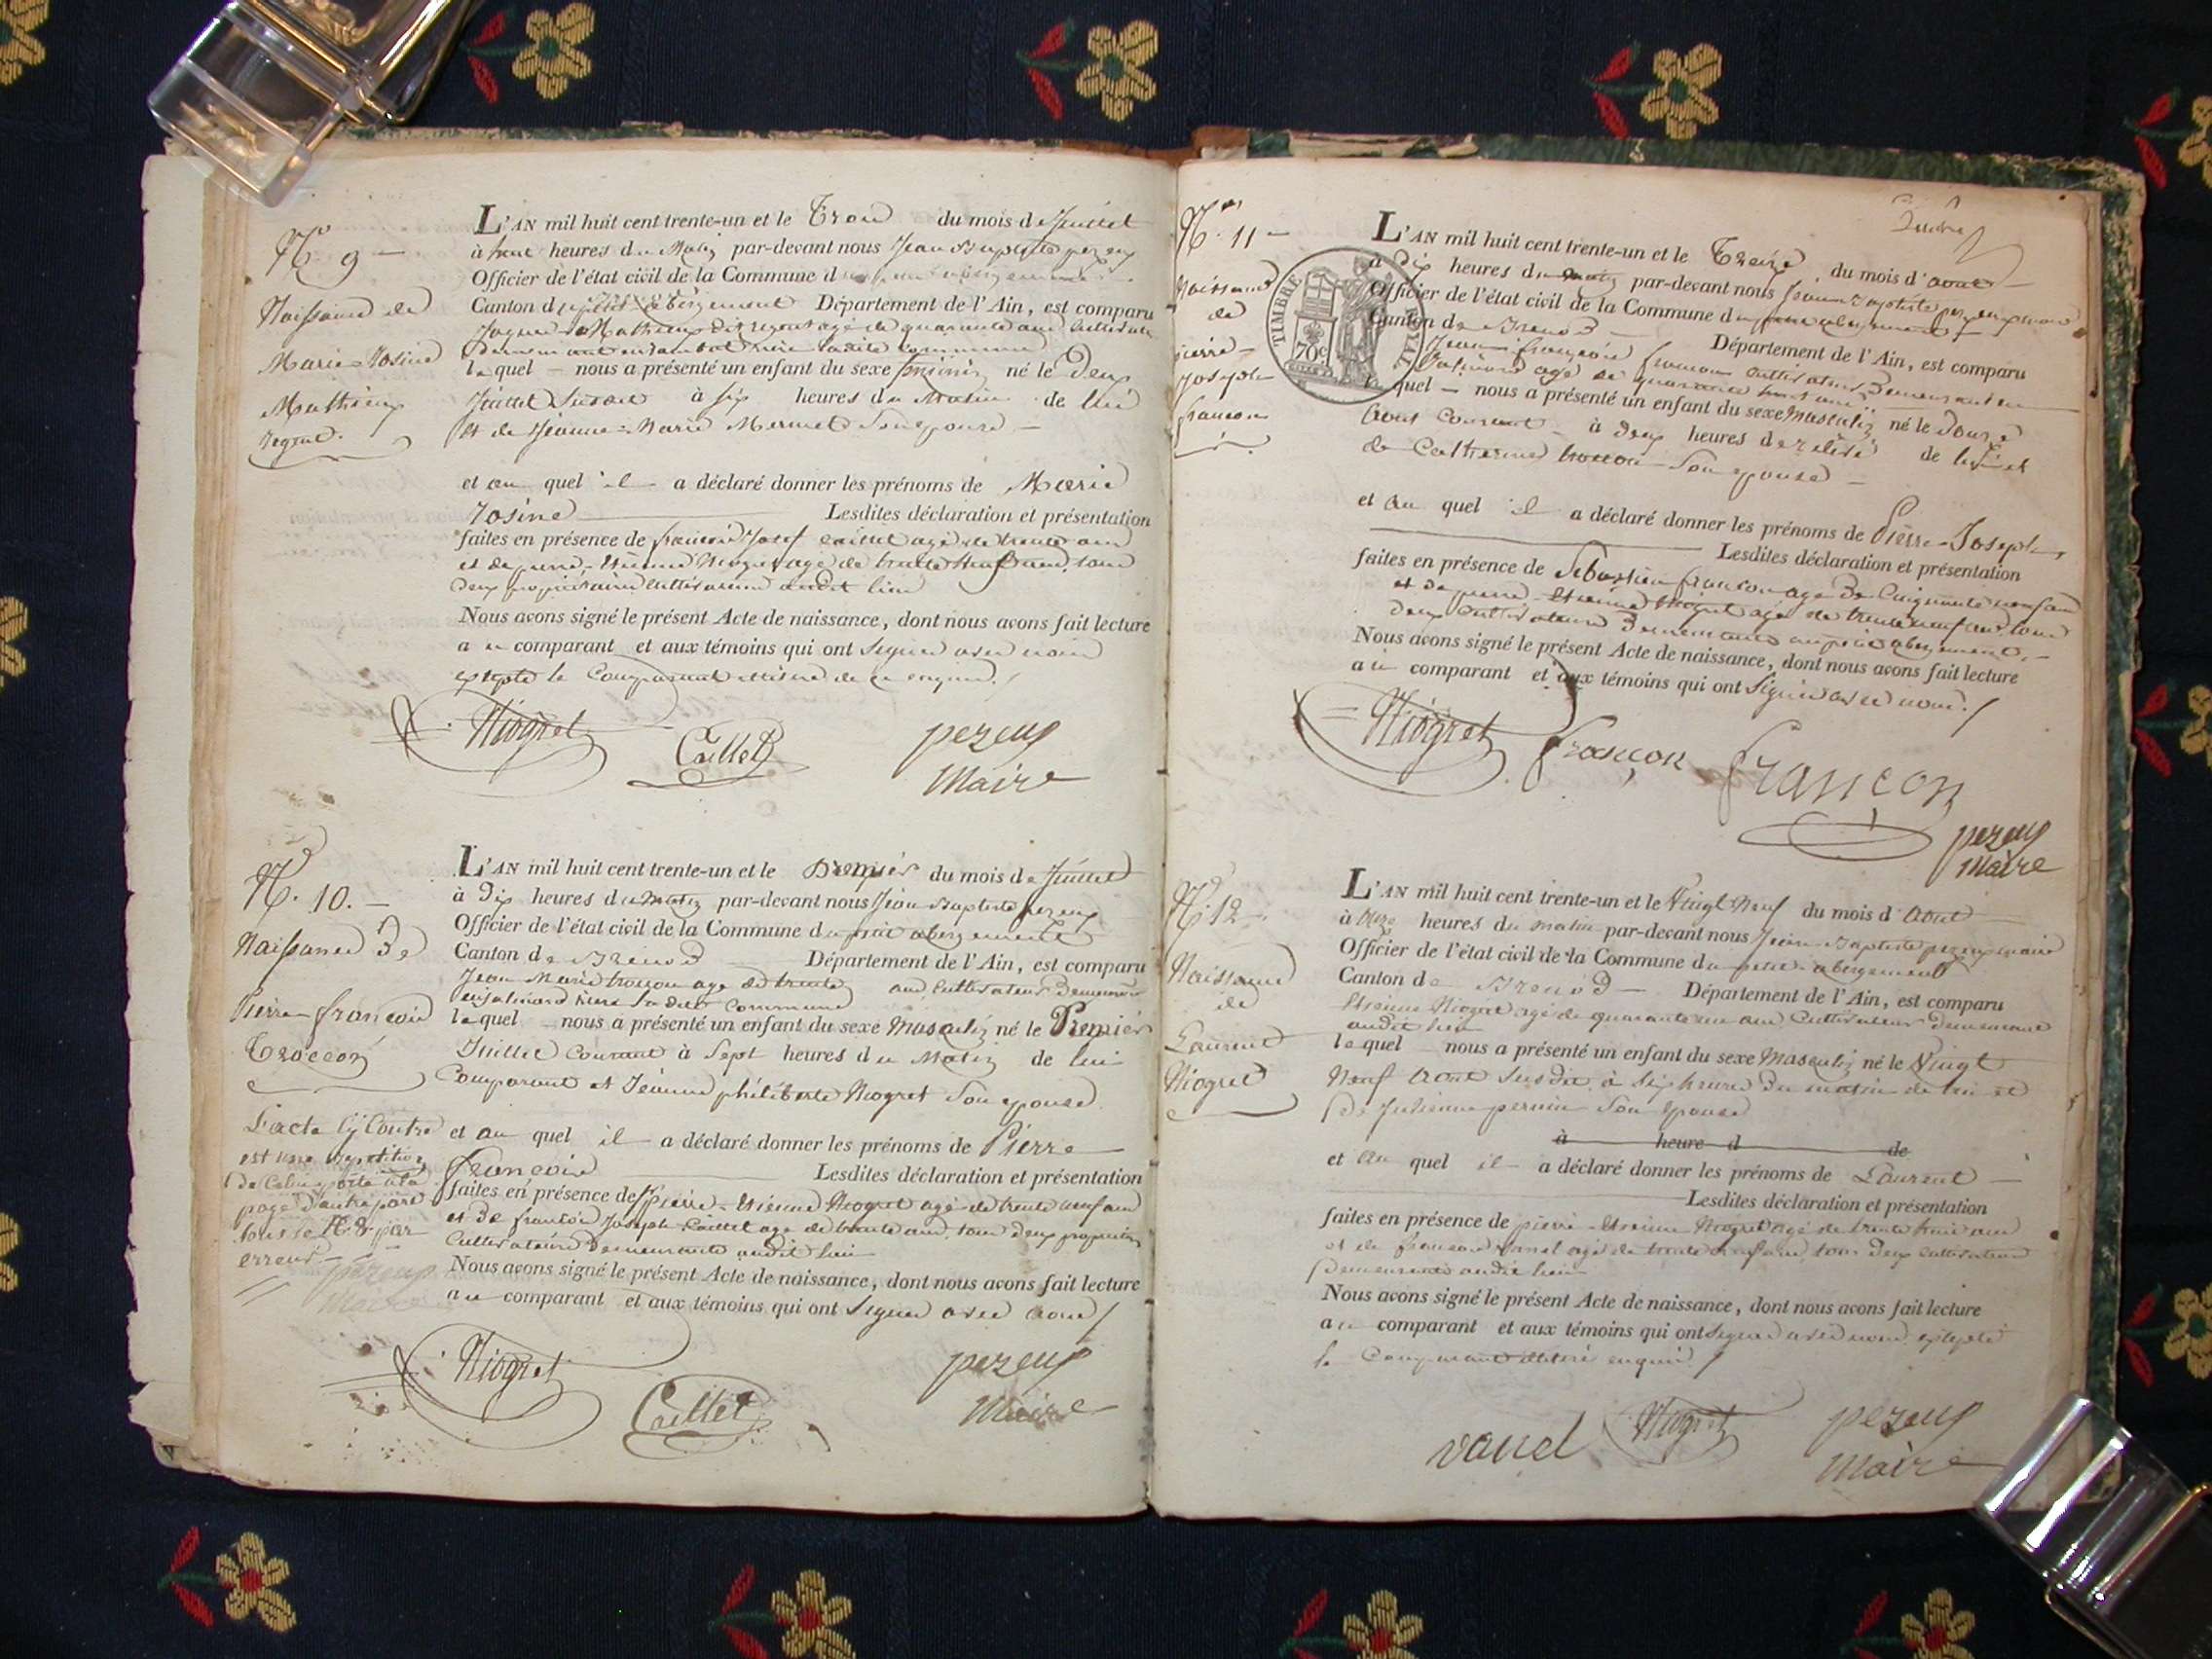 N° 9
Naissance de
Marie-Rosine
Mathieu
L'AN mil huit cent trente-un et le Trois du mois de Juillet
à huit heures du Matin par-devant nous Jean Baptiste pezeux
Officier de l'état civil de la Commune du petit abergement
Canton de Département de l'Ain, est comparu
agé de quarante ans cultivateur
demeurant
lequel nous a présenté un enfant du sexe féminin né le Deux
Juillet Susdit à six heures du Matin de lui
et de Jeanne-Marie Mermet Son epouse
et au quel il a déclaré donner les prénoms de Marie
Rosine Lesdites déclaration et présentation
faites en présence de françois Josef Caillet agé de trente ans
et de pierre-Etienne Niogret agé de trente neuf ans, tous
deux propriétaires cultivateurs audit lieu
Nous avons signé le présent Acte de naissance, dont nous avons fait lecture
au comparant et aux témoins qui ont Signé avec nous
excepté le Comparant illitéré de ce enquis.
Niogret Caillet pezeux
Maire
N° 10.
Naissance De
Pierre françois
Troccon
L'acte cy Contre
est une repetition
de Celui porté à la
page D'autre part
sous le N° 8 par
erreur
pezeux
Maire
L'AN mil huit cent trente-un et le Premier du mois de Juillet
à Dix heures du Matin par-devant nous Jean Baptiste pezeux
Officier de l'état civil de la Commune du petit abergement
Canton de Brenod Département de l'Ain, est comparu
Jean Marie troccon age de trente ans Cultivateur Demeurant
Commune
lequel nous a présenté un enfant du sexe Masculin né le Premier
Juillet Courant à Sept heures du Matin de lui
Comparant et Jeanne philiberte Niogret Son epouse
et au quel il a déclaré donner les prénoms de Pierre
françois Lesdites déclaration et présentation
faites en présence de Pierre-Etienne Niogret agé de trente neuf ans
et De françois Joseph Caillet age de trente ans, tous deux propriétaires
Cultivateurs Demeurants audit lieu
Nous avons signé le présent Acte de naissance, dont nous avons fait lecture
au comparant et aux témoins qui ont Signé avec nous
Niogret Caillet pezeux
Maire
N° 11
Naissance
de
pierre-
joseph
francon
TIMBRE
70c
L'AN mil huit cent trente-un et le Treize du mois d'aout
à Dix heures du matin par-devant nous Jean Baptiste pezeux maire
Officier de l'état civil de la Commune du petit abergement
Canton de Brenod Département de l'Ain, est comparu
Jean françois francon cultivateur Demeurant en
agé de quarante huit ans
lequel nous a présenté un enfant du sexe Masculin né le Douze
Aout Courant à Deux heures de relevé de lui et
de Catherine troccon Son epouse
et au quel il a déclaré donner les prénoms de Pierre-Joseph
Lesdites déclaration et présentation
faites en présence de Sebastien francon age De Cinquante neuf ans
et de pierre Etienne Niogret agé de trente neuf ans, tous
deux Cultivateurs Demeurants au petit abergement,
Nous avons signé le présent Acte de naissance, dont nous avons fait lecture
au comparant et aux témoins qui ont Signé avec nous.
Niogret françon françon
pezeux
Maire
N° 12
Naissance
de
Laurent
Niogret
L'AN mil huit cent trente-un et le Vingt Neuf du mois d'Aout
à Onze heures du matin par-devant nous Jean-Baptiste pezeux maire
Officier de l'état civil de la Commune du petit-abergement
Canton de Brenod Département de l'Ain, est comparu
Etienne Niogret agé de quarante un ans Cultivateur demeurant
audit lieu
lequel nous a présenté un enfant du sexe Masculin né le Vingt
Neuf Aout Susdit à Six heures du matin de lui et
De Julienne perrin Son Epouse
à heure d de
et au quel il a déclaré donner les prénoms de Laurent
Lesdites déclaration et présentation
faites en présence de pierre-Etienne Niogret agé de trente huit ans
et de francois Vanel agé de trente neuf ans, tous Deux cultivateurs
Demeurants audit lieu
Nous avons signé le présent Acte de naissance, dont nous avons fait lecture
au comparant et aux témoins qui ont signé avec nous excepté
le Comparant illitéré enquis.
vanel Niogret pezeux
Maire